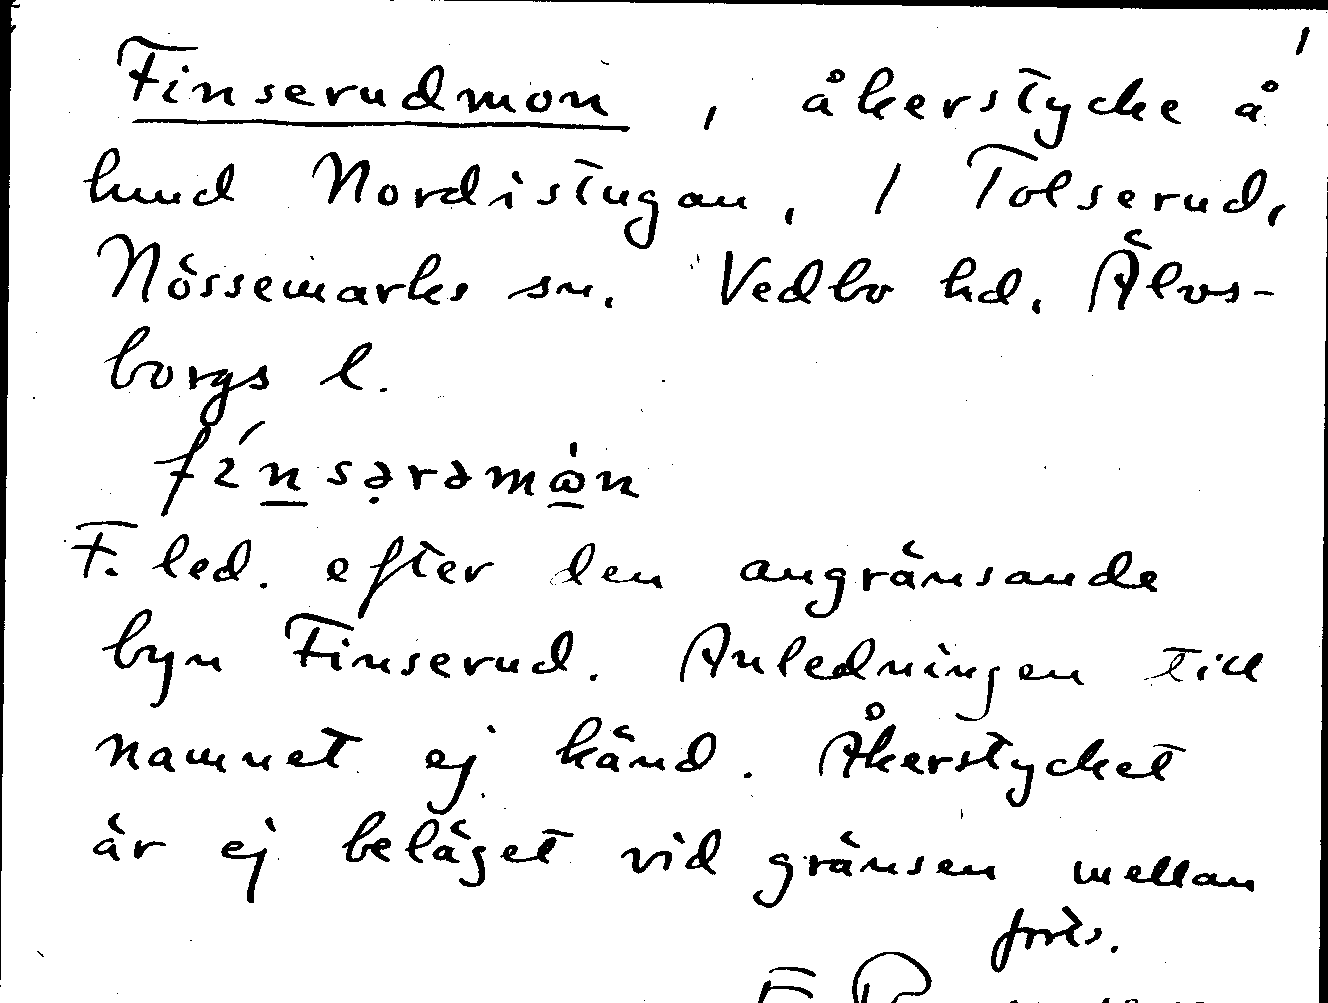 1
Finserudmon, åkerstycke å
hmd Nordistugan, 1 Tolserud,
Nössemarks sn. Vedbo hd. Älvs-
borgs l.
fínsərəmòn
F. led. efter den angränsande
byn Finserud. Anledningen till
namnet ej känd. Åkerstycket
är ej beläget vid gränsen mellan
forts.